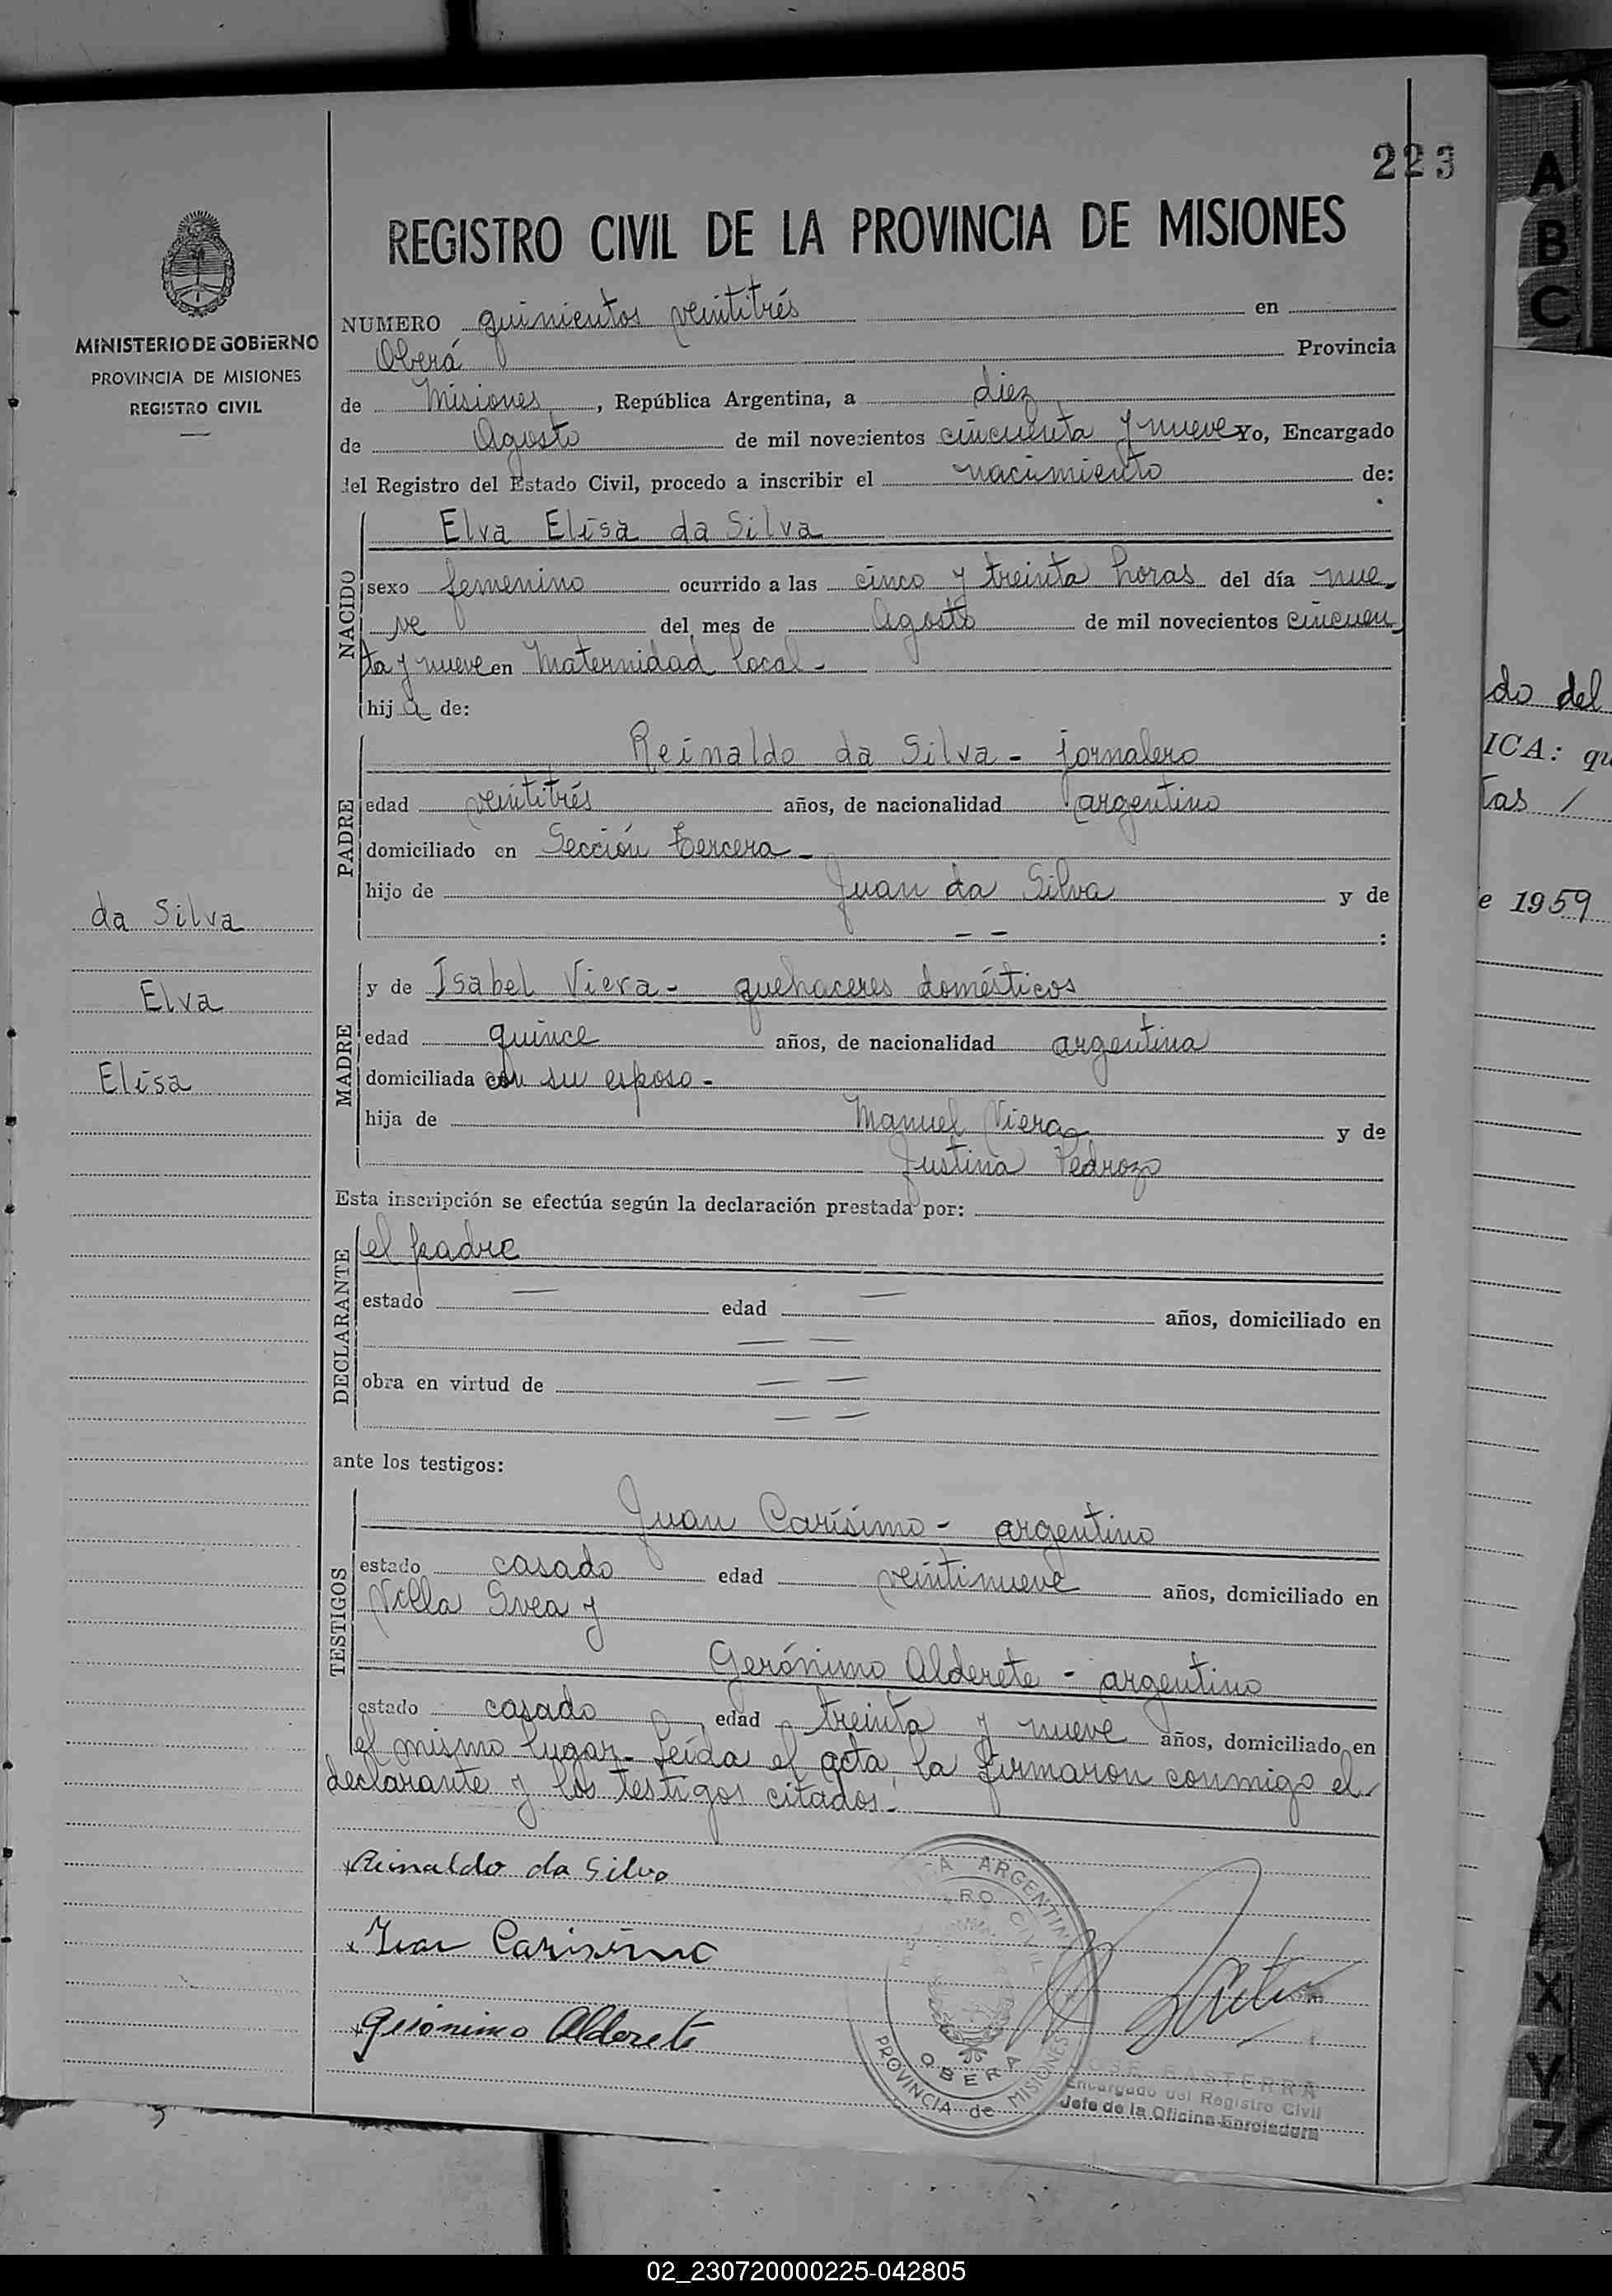 223
REGISTRO CIVIL DE LA PROVINCIA DE MISIONES
MINISTERIO DE GOBIERNO
PROVINCIA DE MISIONES
REGISTRO CIVIL
NUMERO quinientos veintitrés en
Oberá Provincia
de Misiones, República Argentina, a diez
de Agosto de mil novecientos cincuenta y nueve Yo, Encargado
del Registro del Estado Civil, procedo a inscribir el nacimiento de:
NACIDO
Elva Elisa da Silva
sexo femenino ocurrido a las cinco y treinta horas del día nue-
ve del mes de Agosto de mil novecientos cincuen-
ta y nueve en Maternidad local-
hija de:
PADRE
Reinaldo da Silva - jornalero
edad veintitrés años, de nacionalidad argentino
domiciliado en Sección tercera-
hijo de Juan da Silva y de
- - :
da Silva
Elva
Elisa
MADRE
y de Isabel Viera - quehaceres domésticos
edad quince años, de nacionalidad argentina
domiciliada con su esposo-
hija de Manuel Viera y de
Justina Pedrozo
Esta inscripción se efectúa según la declaración prestada por:
DECLARANTE
el padre
estado — edad — años, domiciliado en
— —
obra en virtud de — —
— —
ante los testigos:
TESTIGOS
Juan Carísimo - argentino
estado casado edad veintinueve años, domiciliado en
Villa Svea y
Gerónimo Alderete - argentino
estado casado, edad treinta y nueve años, domiciliado en
el mismo lugar- Leída el acta, la firmaron conmigo el
declarante y los testigos citados.-
Reinaldo da Silva
Juan Carisimo
Gerónimo Alderete
ARGENTINA
CIVIL
OBERA
PROVINCIA de MISIONES
JOSE BASTERRA
Encargado del Registro Civil
Jefe de la Oficina Enroladora
A
B
C
X
Y
Z
do del
ICA: qu
tas /
e 1959
02_230720000225-042805